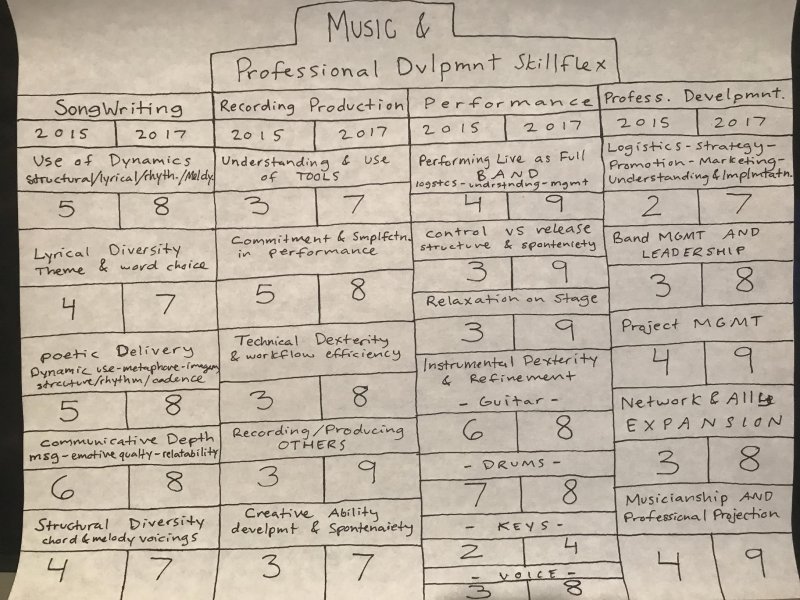 Music &
Professional Dvlpmnt Skillflex
SongWriting
2015 2017
Use of Dynamics
structural/lyrical/rhyth./Meldy.
5 8
Lyrical Diversity
Theme & word choice
4 7
Poetic Delivery
Dynamic use-metaphore-imagery
strcuture/rhythm/cadence
5 8
Communicative Depth
msg-emotive qualty-relatability
6 8
Structural Diversity
chord & melody voicings
4 7
Recording Production
2015 2017
Understanding & use
of TOOLS
3 7
Commitment & Smplfctn.
in performance
5 8
Technical Dexterity
& workflow efficiency
3 8
Recording/Producing
OTHERS
3 9
Creative Ability
develpmt & Spontenaiety
3 7
Performance
2015 2017
Performing Live as Full
BAND
logstcs-undrstndng-mgmt
4 9
control vs release
structure & sponteniety
3 9
Relaxation on Stage
3 9
Instrumental Dexterity
& Refinement
- Guitar -
6 8
- DRUMS -
7 8
- KEYS -
2 4
- VOICE -
3 8
Profess. Develpmnt.
2015 2017
Logistics - Strategy -
Promotion - Marketing -
Understanding & Implmtatn.
2 7
Band MGMT AND
LEADERSHIP
3 8
Project MGMT
4 9
Network &
EXPANSION
3 8
Musicianship AND
Professional Projection
4 9